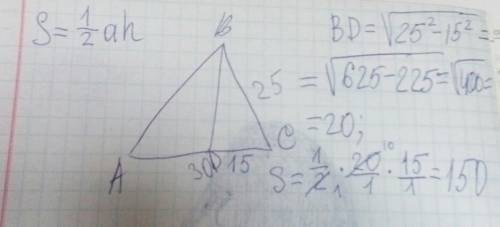 S = 1/2 ah
B
BD = √25² - 15² =
25 = √625 - 225 = √400 =
C = 20;
A 30 D 15 S = 1/2 · 20/1 · 15/1 = 150
1 10